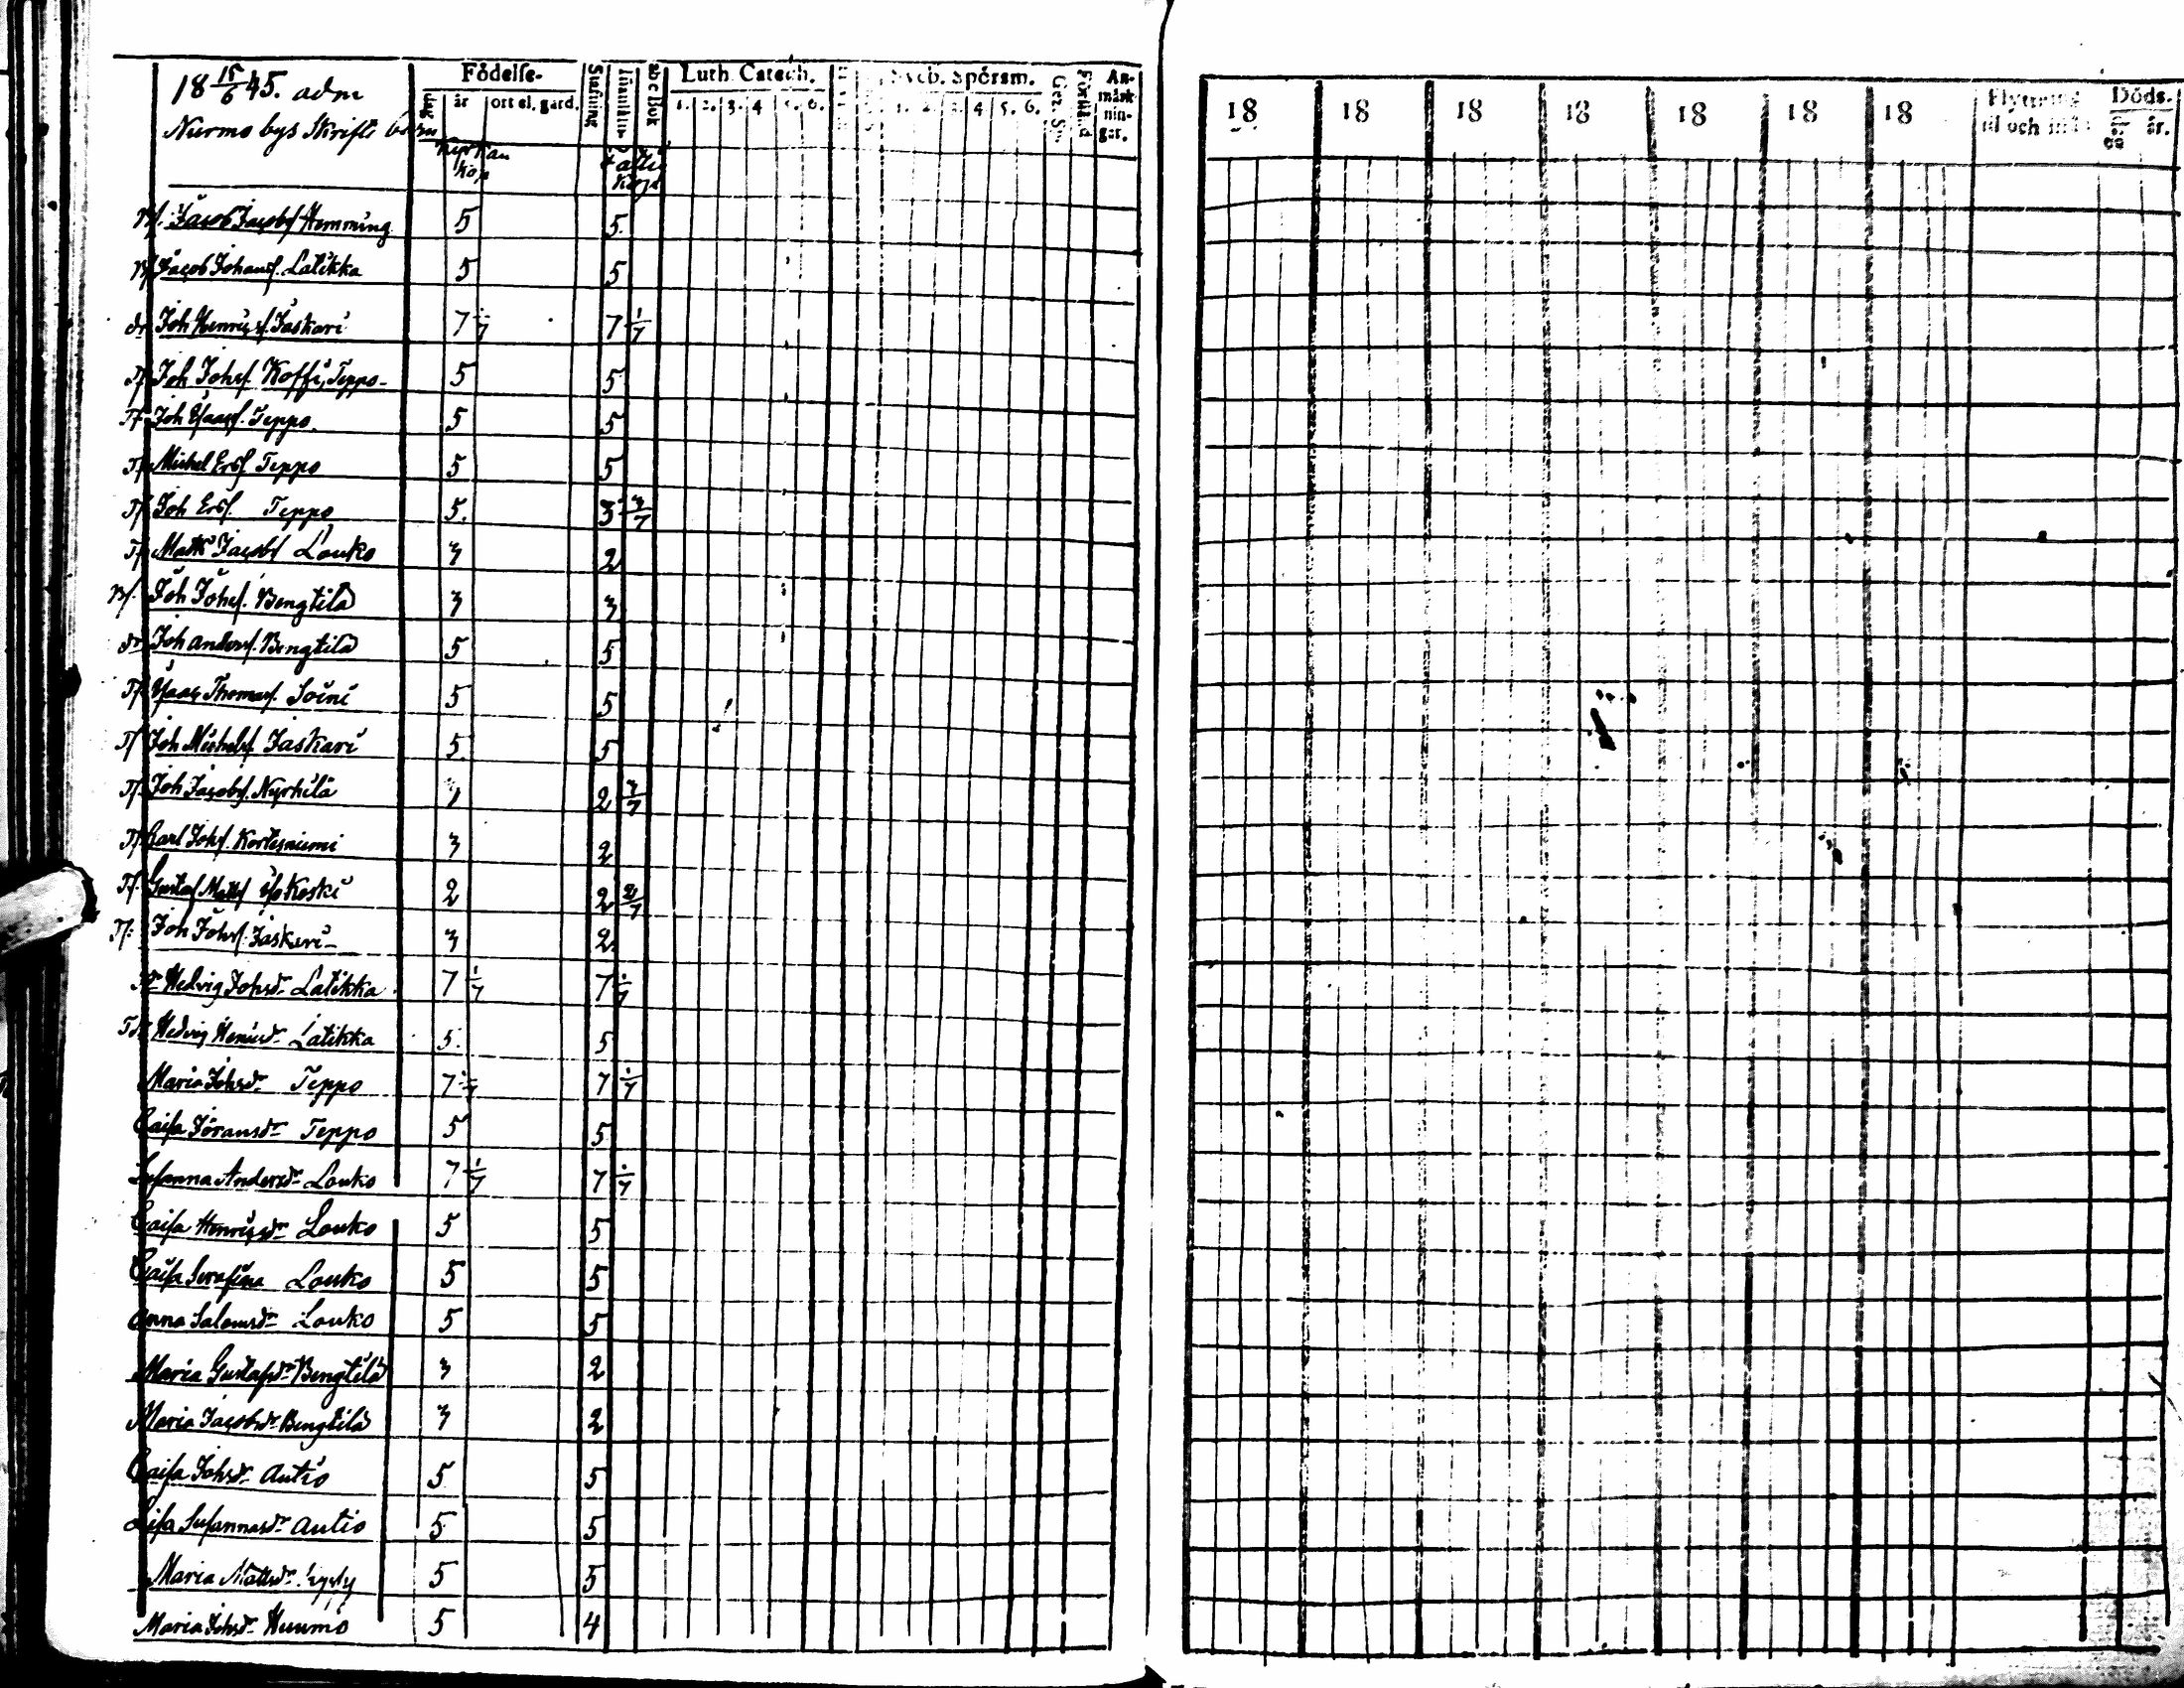 18 15/6 45. adm
Nurmo bys Skrift barn
Födelse-
dag
år
ort el. gård.
Stafning
Innanläs
abc Bok
Luth. Catech.
1. 2. 3. 4 5. 6.
Sveb. Spörsm.
1. 2. 3. 4 5. 6.
Förstånd
An-
märk-
nin-
gar.
18 18 18 18 18 18 18
Flyttning
til och ifrån
Döds-
dag år.
Kyrkan
Kop
Kop
Bf. Jacob Jacobsf Hemming 5 5
Bf Jacob Johansf. Latikka 5 5
dr Joh Henricsf. Jaskari 7 1/7 7 1/7
Tf. Joh Johsf. Koffi, Teppo 5 5
Tf. Joh Isaacsf. Teppo. 5 5
Tf. Michel Ersf Teppo 5 5
Tf. Joh Ersf. Teppo 5. 3 3/7
Tf. Matts Jacobsf Louko 3 2
Bf. Joh Johsf. Bengtila 3 3
dr Joh Andersf. Bengtila 5 5
Tf. Isaac Thomasf. Soini 5 5
Tf Joh Michelsf. Jaskari 5. 5
Tf. Joh Jacobsf. Nyrhilä 3 2 3/7
Tf Carl Johsf. Kortesniemi 3 2
Tf. Gustaf Mattsf Ylikoski 2 2 2/7
Tf. Joh Johsf. Jaskari 3 2
Hedvig Johsdr Latikka 7 1/7 7 1/7
Hedvig Henricsdr Latikka 5. 5
Maria Johsdr Teppo 7 1/7 7 1/7
Caisa Göransdr Teppo 5 5
Susanna Andersdr Louko 7 1/7 7 1/7
Caisa Henricsdr Louko 5 5
Caisa Serafina Louko 5 5
Anna Salomsdr Louko 5 5
Maria Gustafsdr Bengtila 3 2
Maria Jacobsdr Bengtila 3 2
Caisa Johsdr Autio 5 5
Lisa Susannasdr Autio 5 5
Maria Mattsdr 5 5
Maria Johsdr Nurmo 5 4